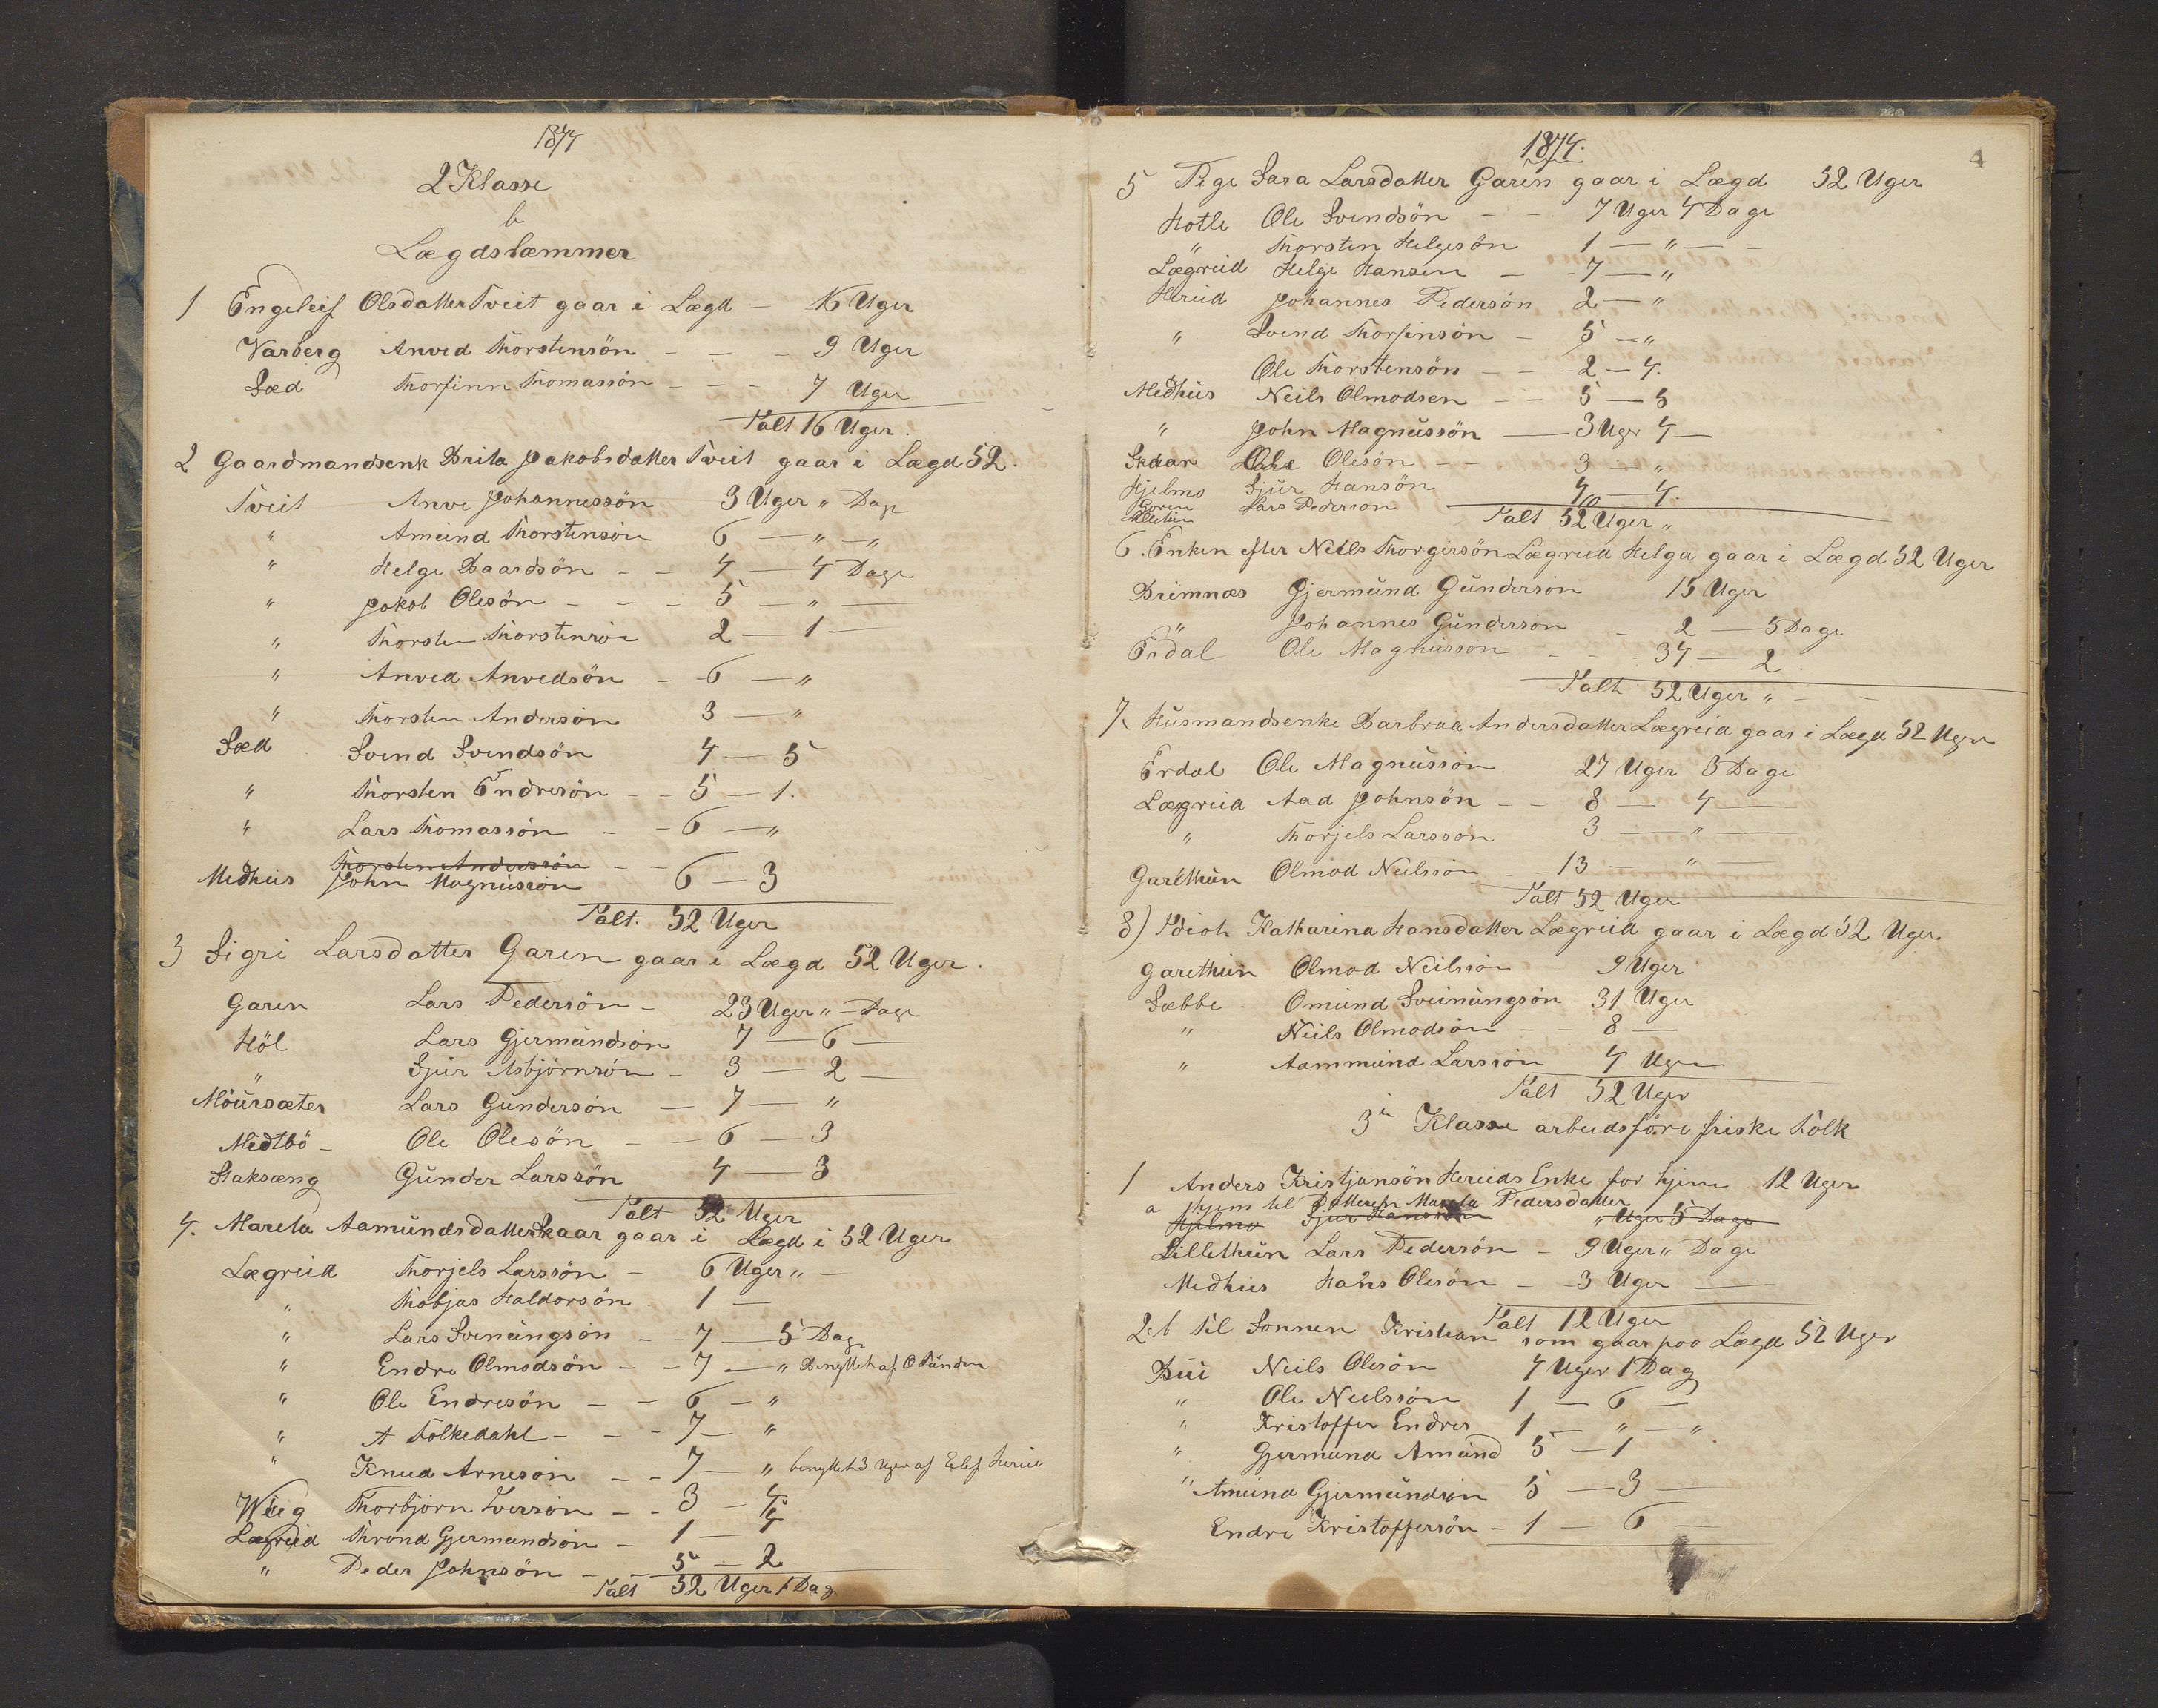 1874
2 Klasse
b
Lægdslæmmer
1 Engeleif Olsdatter Tveit gaar i Lægd – 16 Uger
Varberg Anved Thorstensön – – – 9 Uger
Sæd Thorfinn Thomassön – – – 7 Uger
Talt 16 Uger.
2 Gaardmandsenk Brita Jakobsdatter Tveit gaar i Lægd 52.
Tveit Anve Johannessön 3 Uger " Dage
" Ameind Thorstensön 6 — " — "
" Helge Baardsön – – 4 — 4 Dage
" Jakob Olesön – – – 5 — " —
" Thorsten Thorstensön 2 — 1 —
" Anved Anvedsön – 6 — "
" Thorsten Andersön 3 — "
Sæd Svend Svendsön 4 — 5
" Thorsten Endresön – – 5 — 1.
" Lars Thomassön – – 6 — "
Thorsten Anderssön – –
Medhus John Magnussön 6 — 3
Talt. 52 Uger
3 Sigri Larsdatter Garen gaar i Lægd 52 Uger.
Garen Lars Pedersön – 23 Uger " – Dage
Höl Lars Gjermundsön 7 — 6 —
" Sjur Asbjörnsön – 3 — 2 —
Möursæter Lars Gundersön — 7 — "
Medtbö – Ole Olesön – – 6 — 3
Staksæng Gunder Larssön 4 — 3
Talt 52 Uger
4. Mareta Aamundsdatter Skaar gaar i Lægd i 52 Uger
Lægreid Thorjels Larssön – 6 Uger " –
" Thobjas Haldorsön 1 —
" Lars Sveinungsön – – 7 — 5 Dage
" Endre Olmodsön – – 7 — " Benyttet af O
" Ole Endresön – – 6 – "
" A Folkedahl – – – 7 – "
" Knud Arnesön – – 7 — " benyttet 3 Uger af Eilef Hereid
Wiig Thorbjörn Iversön – – 3 – 4
Lægreid Thrond Gjermundsön – 1 — 4
" Peder Johnsön – – 5 — 2
Talt 52 Uger 1 Dag
1874.
4
5 Pige Sara Larsdatter Garen gaar i Lægd 52 Uger
Hotle Ole Svendsön – – 7 Uger 4 Dage
" Thorsten Helgesön 1 — " — –
Lægreid Helge Hansen – – 7 — "
Hereid Johannes Pedersön 2 — "
" Svend Thorfinsön – 5 — "
Ole Thorstensön – – – 2 – 4.
Medhus Neils Olmodsen – – 5 — 5
" John Magnussön — 3 Uger 4 —
Skaar Ole Olesön – – 3 — "
Hjelmo Sjur Hansön 4 — 4.
Garen Lars Pederson 10
Lillethun
Talt 52 Uger "
6. Enken efter Neils Thorgersön Lægreid Helga gaar i Lægd 52 Uger
Brimnæs Gjermund Gundersön 15 Uger
" Johannes Gundersön – 2 — 5 Dage
Erdal Ole Magnussön – – – 34 — 2.
Talt 52 Uger " –
7. Husmandsenke Barbraa Andersdatter Lægreid gaar i Lægd 52 Uger
Erdal Ole Magnussön 27 Uger 3 Dage
Lægreid Aad Johnsön – – 8 — 4 —
" Thorjels Larssön 3 — " —
Garethun Olmod Neilssön – 13 — " —
Talt 52 Uger
8) Idiot Katharina Hansdatter Lægreid gaar i Lægd 52 Uger
Garethun Olmod Neilssön 9 Uger
Sæbbe – Omund Sveinungsön 31 Uger
" Neils Olmodsön – – 8 —
" Aammund Larssön 4 Uger
Talt 52 Uger
3die Klasse arbeidsföre friske Folk
1 Anders Kristjansön Hereids Enke for hjem 12 Uger
a hjem til Datteren Mareta Pedersdatter
Hjelmo Sjur Hansson " Uger 5 Dage
Lillethun Lars Pedersön – 9 Uger " Dage
Medhus Hans Olesön – – 3 Uger —
Talt 12 Uger
2 b til Sonnen Kristian som gaar paa Lægd 52 Uger
Bui Neils Olesön 4 Uger 1 Dag
" Ole Neilssön 1 — 6 —
" Kristoffer Endres 1 — " — "
" Gjermund Amund 5 — 1
" Amund Gjermundsön 5 — 3 —
Endre Kristoffersön – 1 — 6 —